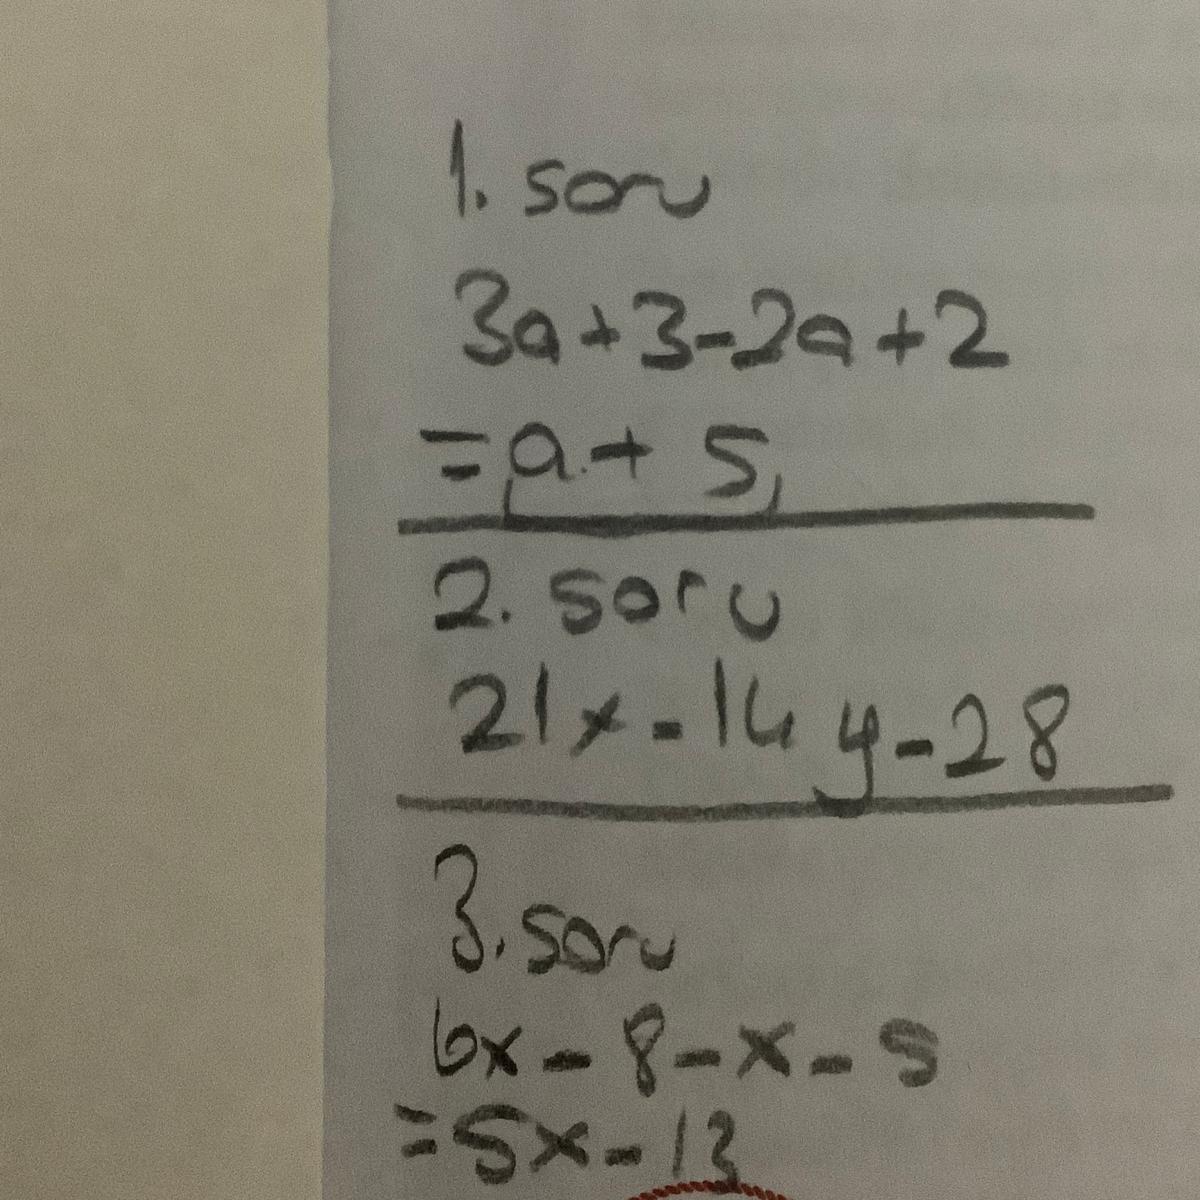 1. soru
3a+3-2a+2
=a+ 5
2. soru
21x-14y-28
3. soru
6x-8-x-5
=5x-13